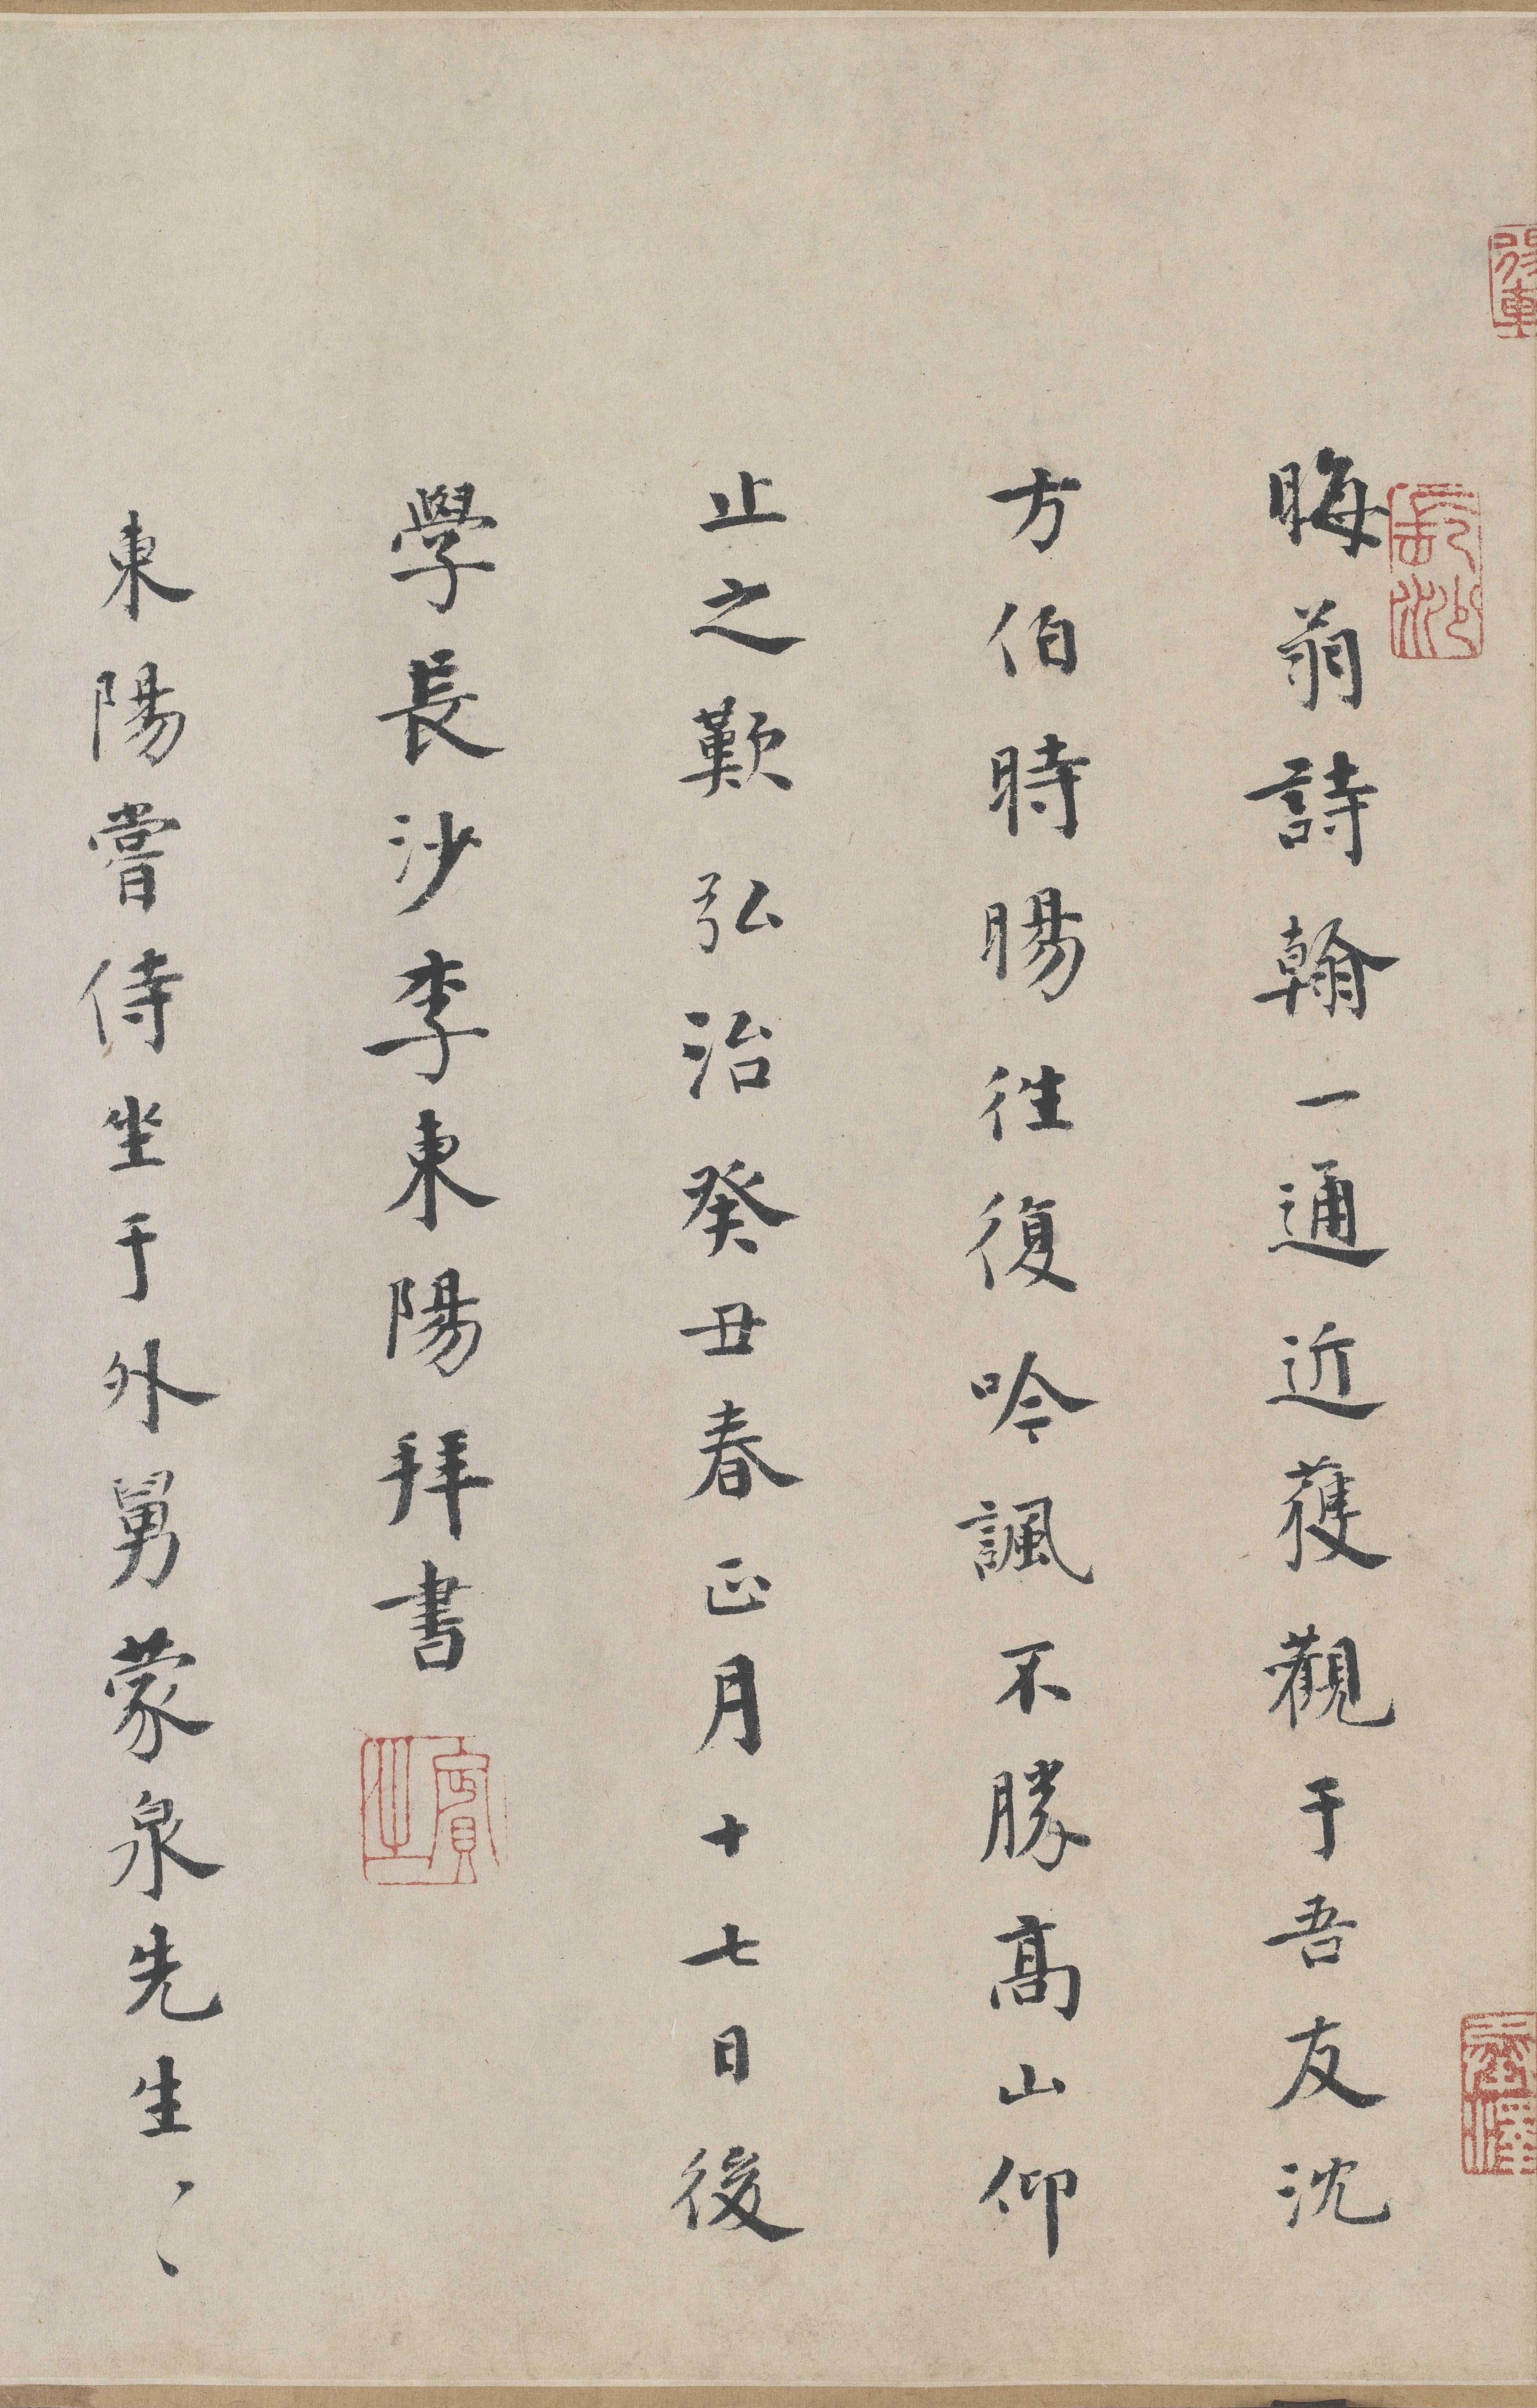 晦翁詩翰一通近獲觀于吾友沈
方伯時暘徃復吟諷不勝高山仰
止之歎弘治癸丑春正月十七日後
學長沙李東陽拜書
賓之
東陽嘗侍坐于外舅蒙泉先生〻
長沙